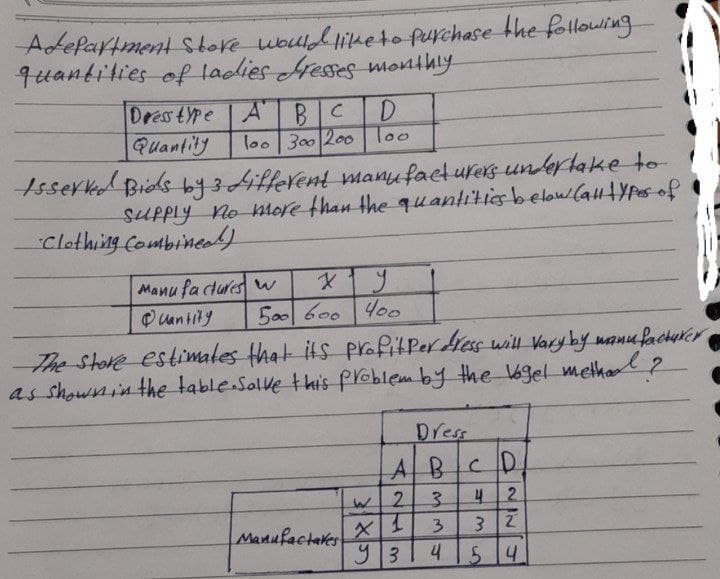 A department Store would like to purchase the following
quantities of ladies dresses monthly
Dress type A B C D
Quantity 100 300 200 100
Isserved Bids by 3 different manufacturers undertake to
supply no more than the quantities below (all types of
Clothing Combined)
Manufactures w x y
Quantity 500 600 400
The store estimates that its profit per dress will vary by manufacturer
as shown in the table. Solve this problem by the Vogel method?
Dress
A B C D
w 2 3 4 2
Manufactares x 1 3 3 2
y 3 4 5 4